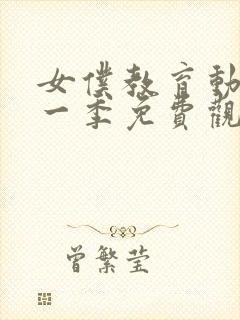 女僕教育動
一季免費觀
曾繁莹